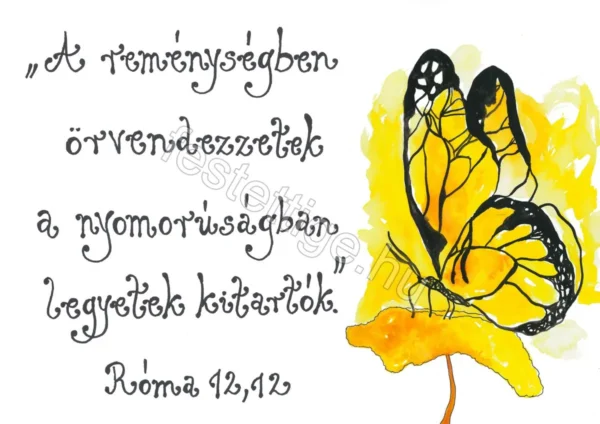 „A reménységben
örvendezzetek
a nyomorúságban
legyetek kitartók.”
Róma 12,12
festettige.hu